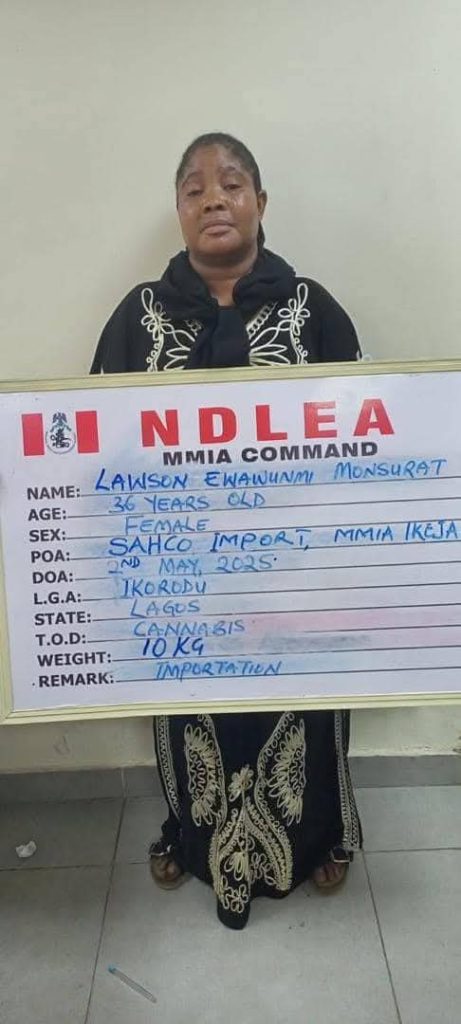 NDLEA
MMIA COMMAND
NAME: LAWSON EWAWUNMI MONSURAT
AGE: 36 YEARS OLD
SEX: FEMALE
POA: SAHCO IMPORT, MMIA IKEJA
DOA: 2ND MAY, 2025.
L.G.A: IKORODU
STATE: LAGOS
T.O.D: CANNABIS
WEIGHT: 10 KG
REMARK: IMPORTATION